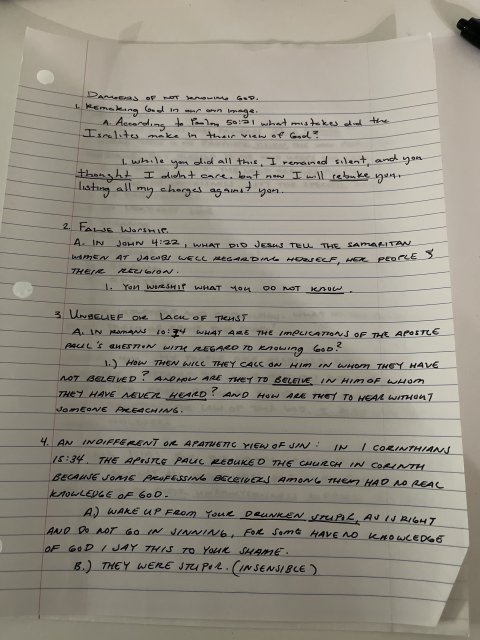 DANGERS OF NOT KNOWING GOD.
1. Remaking God in our own image.
A. According to Psalm 50:21 what mistakes did the
Isralites make in their view of God?
1. While you did all this, I remained silent, and you
thought I didnt care. but now I will rebuke you,
listing all my charges against you.
2. FALSE WORSHIP.
A. IN JOHN 4:22, WHAT DID JESUS TELL THE SAMARITAN
WOMEN AT JACOBS WELL REGARDING HERSELF, HER PEOPLE &
THEIR RELIGION.
1. YOU WORSHIP WHAT YOU DO NOT KNOW.
3 UNBELIEF OR LACK OF TRUST
A. IN ROMANS 10:14 WHAT ARE THE IMPLICATIONS OF THE APOSTLE
PAUL'S QUESTION WITH REGARD TO KNOWING GOD?
1.) HOW THEN WILL THEY CALL ON HIM IN WHOM THEY HAVE
NOT BELEIVED? AND HOW ARE THEY TO BELEIVE IN HIM OF WHOM
THEY HAVE NEVER HEARD? AND HOW ARE THEY TO HEAR WITHOUT
SOMEONE PREACHING.
4. AN INDIFFERENT OR APATHETIC VIEW OF SIN: IN 1 CORINTHIANS
15:34. THE APOSTLE PAUL REBUKED THE CHURCH IN CORINTH
BECAUSE SOME PROFESSING BELEIVERS AMONG THEM HAD NO REAL
KNOWLEDGE OF GOD.
A.) WAKE UP FROM YOUR DRUNKEN STUPOR, AS IS RIGHT
AND DO NOT GO IN SINNING, FOR SOME HAVE NO KNOWLEDGE
OF GOD I SAY THIS TO YOUR SHAME.
B.) THEY WERE STUPOR. (INSENSIBLE)